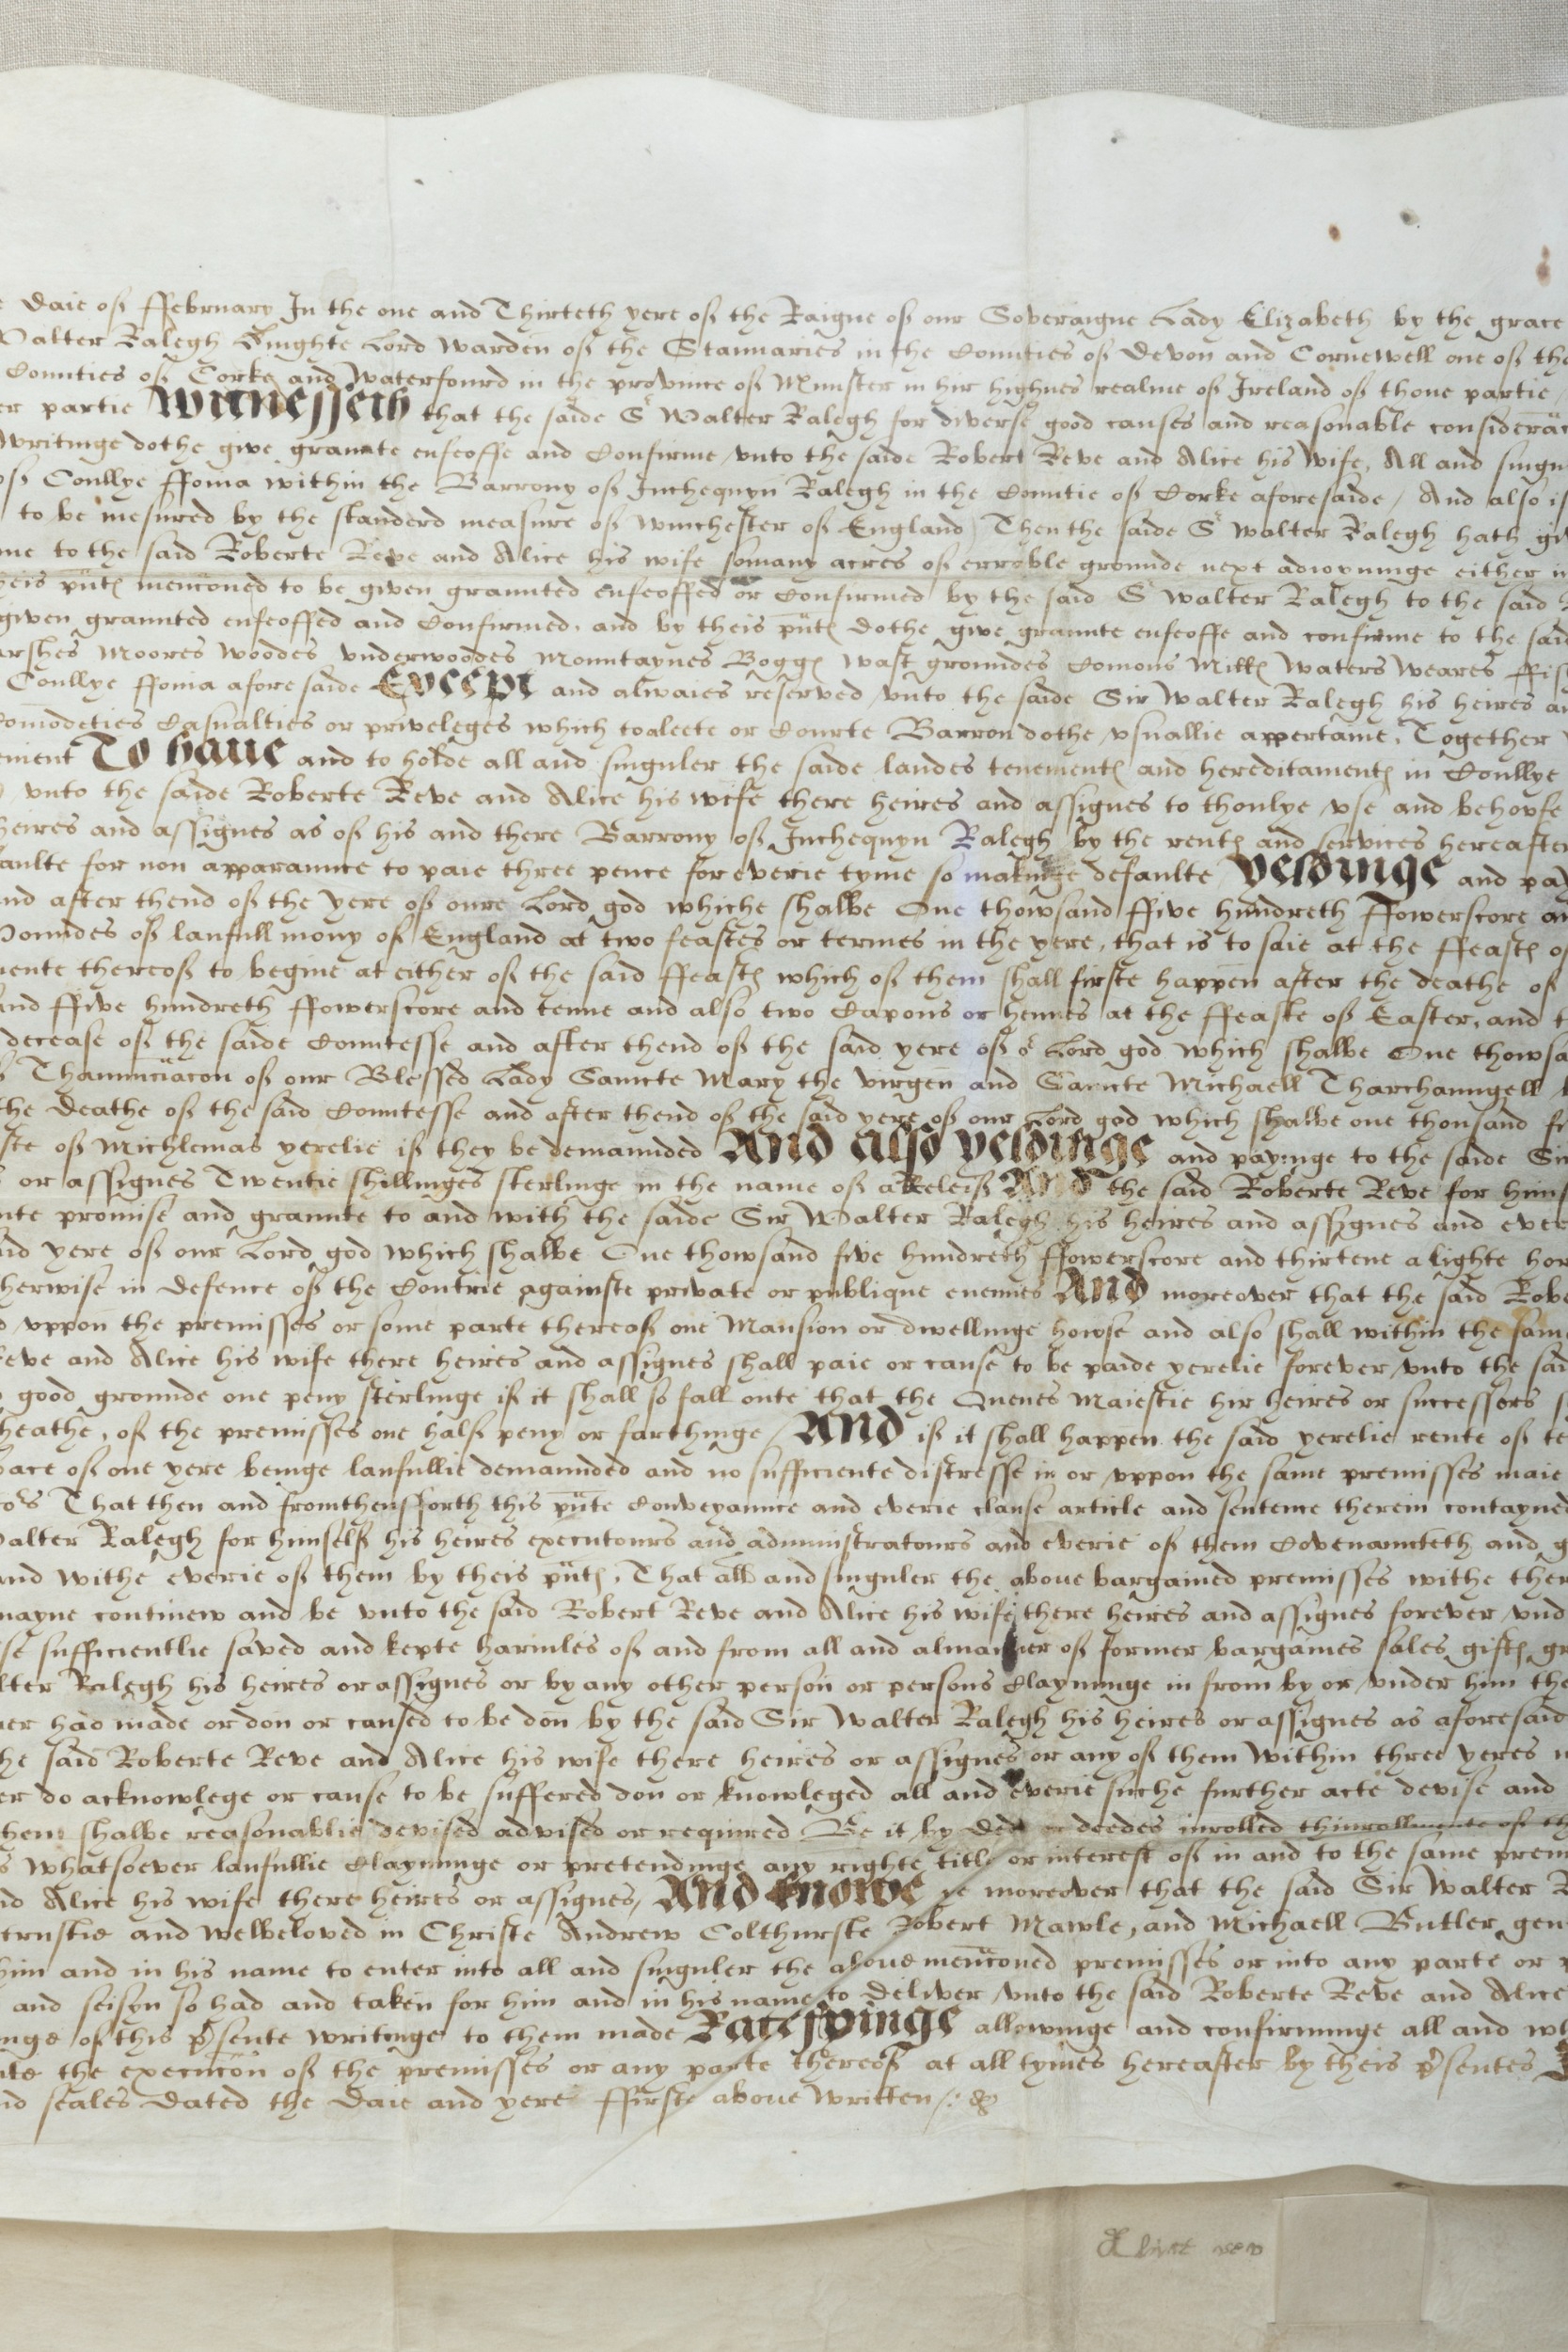 Daie of ffebruary In the one and Thirteth yere of the Raigne of our Soveraigne Lady Elizabeth by the grace
Walter Ralegh Knighte Lord Warden of the Stannaries in the Counties of Devon and Cornewell one of the
Counties of Corke and Waterfourd in the province of Munster in hir highnes realme of Ireland of thone partie
er partie Witnesseth that the saide Sr Walter Ralegh for diverse good causes and reasonable consideracons
writinge dothe give graunte enfeoffe and Confirme vnto the saide Robert Reve and Alice his wife, All and singu
of Coullye ffoma within the Barrony of Inchequyn Ralegh in the Countie of Corke aforesaide / And also if
to be mesured by the standerd measure of winchester of England / Then the saide Sr walter Ralegh hath giv
me to the said Roberte Reve and Alice his wife somany acres of errable grounde next adioyninge either in
theis pñtꝭ mencõned to be given graunted enfeoffed or Confirmed by the said Sr walter Ralegh to the said R
given graunted enfeoffed and Confirmed, and by theis pñtꝭ dothe give graunte enfeoffe and confirme to the said
arshes Moores Woodes vnderwoodes Mountaynes Boggꝭ wast groundes Comons Millꝭ waters weares ffis
Coullye ffoma aforesaide Except and alwaies reserved vnto the saide Sir Walter Ralegh his heires an
Comodeties Casualties or priveleges which toaleete or Courte Barron dothe vsuallie appertaine, Together
ement To haue and to holde all and singuler the saide landes tenementꝭ and hereditamentꝭ in Coullye
vnto the saide Roberte Reve and Alice his wife there heires and assignes to thonlye vse and behoufe
heires and assignes as of his and there Barrony of Inchequyn Ralegh by the rentꝭ and services hereafter
aulte for non apparaunce to paie three pence for everie tyme so makinge defaulte Yeldinge and pay
nd after thend of the yere of oure Lord god whiche shalbe One thowsand ffive hundreth ffowerscore an
Poundes of laufull mony of England at two feastes or termes in the yere, that is to saie at the ffeastꝭ of
mente thereof to begine at either of the said ffeastꝭ which of them shall firste happen after the deathe of
and ffive hundreth ffowerscore and tenne and also two Capons or hennes at the ffeaste of Easter, and t
decease of the saide Countesse and after thend of the said yere of or Lord god which shalbe One thowsa
Thannunciacon of our Blessed Lady Saincte Mary the virgen and Saincte Michaell Tharchaungell
the deathe of the said Countesse and after thend of the said yere of our Lord god which shalbe one thousand fi
ste of Michlemas yerelie if they be demaunded And also yeldinge and payinge to the saide Sir
or assignes Twentie shillinges sterlinge in the name of a Releif And the said Roberte Reve for hims
nte promise and graunte to and with the saide Sir Walter Ralegh his heires and assignes and ever
aid yere of our Lord god which shalbe One thowsand five hundreth ffowerscore and thirtene a lighte hor
herwise in defence of the Contrie againste private or publique enemies And moreover that the said Robe
vppon the premisses or some parte thereof one Mansion or dwellinge howse and also shall within the same
Reve and Alice his wife there heires and assignes shall paie or cause to be paide yerelie forever vnto the sai
good grounde one peny sterlinge if it shall so fall oute that the Quenes Maiestie hir heires or successers
heathe, of the premisses one half peny or farthinge / And if it shall happen the said yerelie rente of te
pace of one yere beinge laufullie demaunded and no sufficiente distresse in or vppon the same premisses maie
That then and fromthensfforth this pñte Conveyaunce and everie clause article and sentence therein contayned
Walter Ralegh for himself his heires executours and administratours and everie of them Covenaunteth and g
and withe everie of them by theis pñtꝭ, That all and singuler the above bargained premisses withe ther
mayne continew and be vnto the said Robert Reve and Alice his wife there heires and assignes forever vnd
se sufficientlie saved and kepte harmles of and from all and almanner of former bargaines sales giftꝭ gr
lter Ralegh his heires or assignes or by any other person or persons Clayminge in from by or vnder him the
er had made or don or caused to be don by the said Sir Walter Ralegh his heires or assignes as aforesaid
the said Roberte Reve and Alice his wife there heires or assignes or any of them within three yeres
er do acknowlege or cause to be suffered don or knowleged all and everie suche further acte devise and
them shalbe reasonablie devised advised or required Be it by ded or deedes inrolled thinrollmente of th
whatsoever laufullie Clayminge or pretendinge any righte title or interest of in and to the same premi
nd Alice his wife there heires or assignes, And knowe ye moreover that the said Sir Walter R
trustie and welbeloved in Christe Andrew Colthurste Robert Mawle, and Michaell Butler gen
him and in his name to enter into all and singuler the above mencõned premisses or into any parte or p
and seisyn so had and taken for him and in his name to deliver vnto the said Roberte Reve and Alice
inge of this p̃sente writinge to them made Ratefyinge allowinge and confirminge all and wh
the execucõn of the premisses or any parte thereof at all tymes hereafter by theis p̃sentes
nd seales Dated the Daie and yere ffirste above written